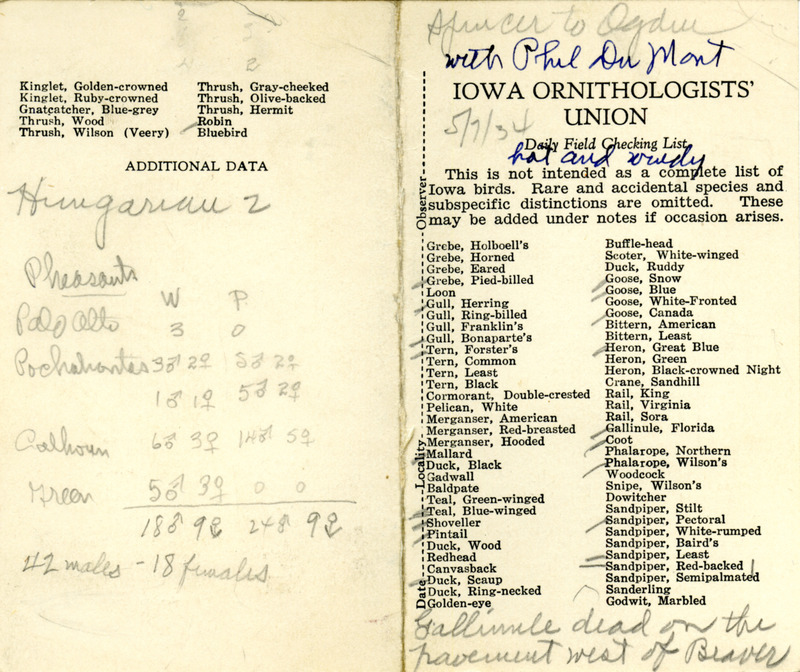 Kinglet, Golden-crowned
Kinglet, Ruby-crowned
Gnatcatcher, Blue-grey
Thrush, Wood
Thrush, Wilson (Veery)
Thrush, Gray-cheeked
Thrush, Olive-backed
Thrush, Hermit
Robin
Bluebird
ADDITIONAL DATA
Hungarian 2
Pheasants
W P
Palo Alto 3 0
Pochahontas 3♂ 2♀ 5♂ 2♀
1♂ 1♀ 5♂ 2♀
Calhoun 6♂ 3♀ 14♂ 5♀
Green 5♂ 3♀ 0 0
18♂ 9♀ 24♂ 9♀
42 males - 18 females
Spencer to Ogden
with Phil Du Mont
IOWA ORNITHOLOGISTS'
UNION
5/7/34
Daily Field Checking List
hot and windy
This is not intended as a complete list of
Iowa birds. Rare and accidental species and
subspecific distinctions are omitted. These
may be added under notes if occasion arises.
Date Locality Observer
Grebe, Holboell's
Grebe, Horned
Grebe, Eared
Grebe, Pied-billed
Loon
Gull, Herring
Gull, Ring-billed
Gull, Franklin's
Gull, Bonaparte's
Tern, Forster's
Tern, Common
Tern, Least
Tern, Black
Cormorant, Double-crested
Pelican, White
Merganser, American
Merganser, Red-breasted
Merganser, Hooded
Mallard
Duck, Black
Gadwall
Baldpate
Teal, Green-winged
Teal, Blue-winged
Shoveller
Pintail
Duck, Wood
Redhead
Canvasback
Duck, Scaup
Duck, Ring-necked
Golden-eye
Buffle-head
Scoter, White-winged
Duck, Ruddy
Goose, Snow
Goose, Blue
Goose, White-Fronted
Goose, Canada
Bittern, American
Bittern, Least
Heron, Great Blue
Heron, Green
Heron, Black-crowned Night
Crane, Sandhill
Rail, King
Rail, Virginia
Rail, Sora
Gallinule, Florida
Coot
Phalarope, Northern
Phalarope, Wilson's
Woodcock
Snipe, Wilson's
Dowitcher
Sandpiper, Stilt
Sandpiper, Pectoral
Sandpiper, White-rumped
Sandpiper, Baird's
Sandpiper, Least
Sandpiper, Red-backed
Sandpiper, Semipalmated
Sanderling
Godwit, Marbled
Gallinule dead on the
pavement west of Beaver